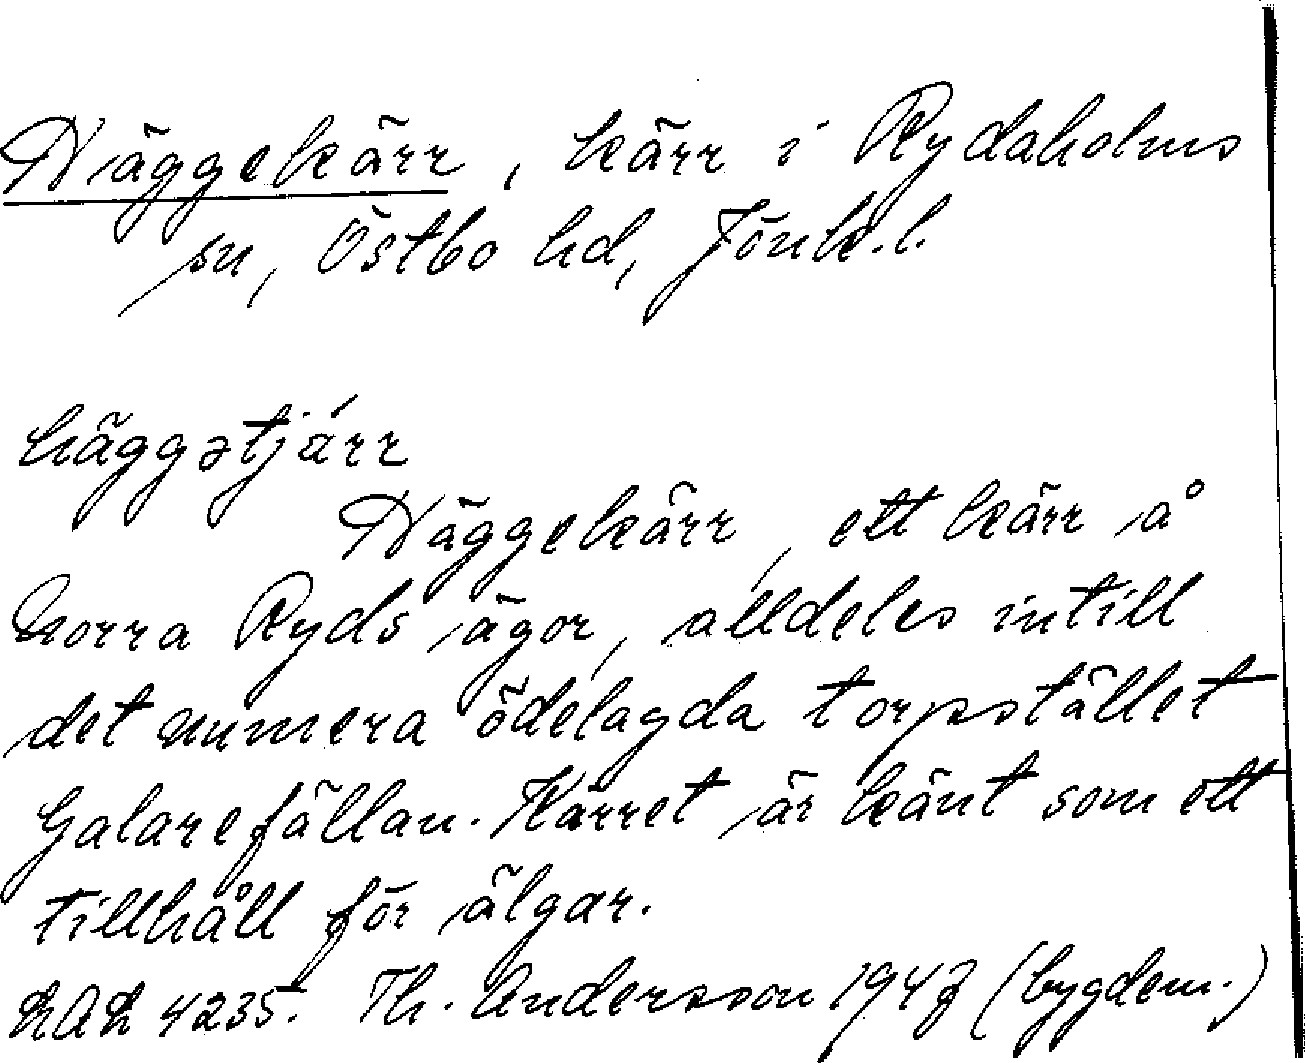 Häggekärr, kärr i Rydaholms
sn, Östbo hd, Jönk.l.
häggətjárr
Häggekärr, ett kärr å
Norra Ryds ägor, alldeles intill
det numera ödelagda torpstället
Galarefällan. Kärret är känt som ett
tillhåll för älgar.
4235. Th. Andersson (bygdem.)